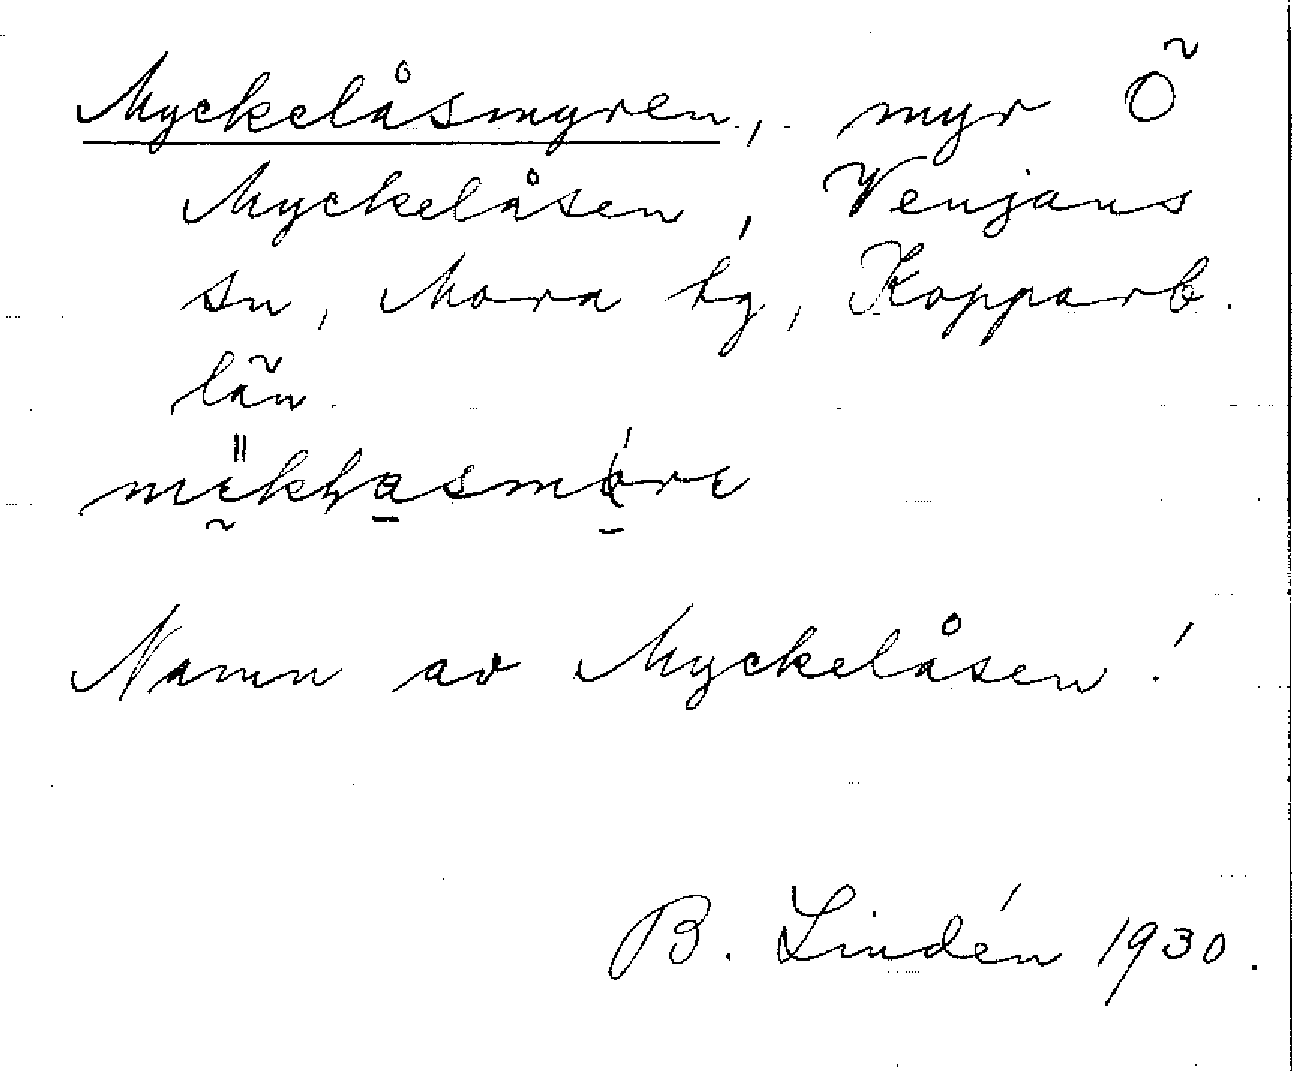 Myckelåsmyren, myr Ö
Myckelåsen, Venjans
sn, Mora hg, Kopparb.
län.
Namn av Myckelåsen!
B. Lindén 1930.